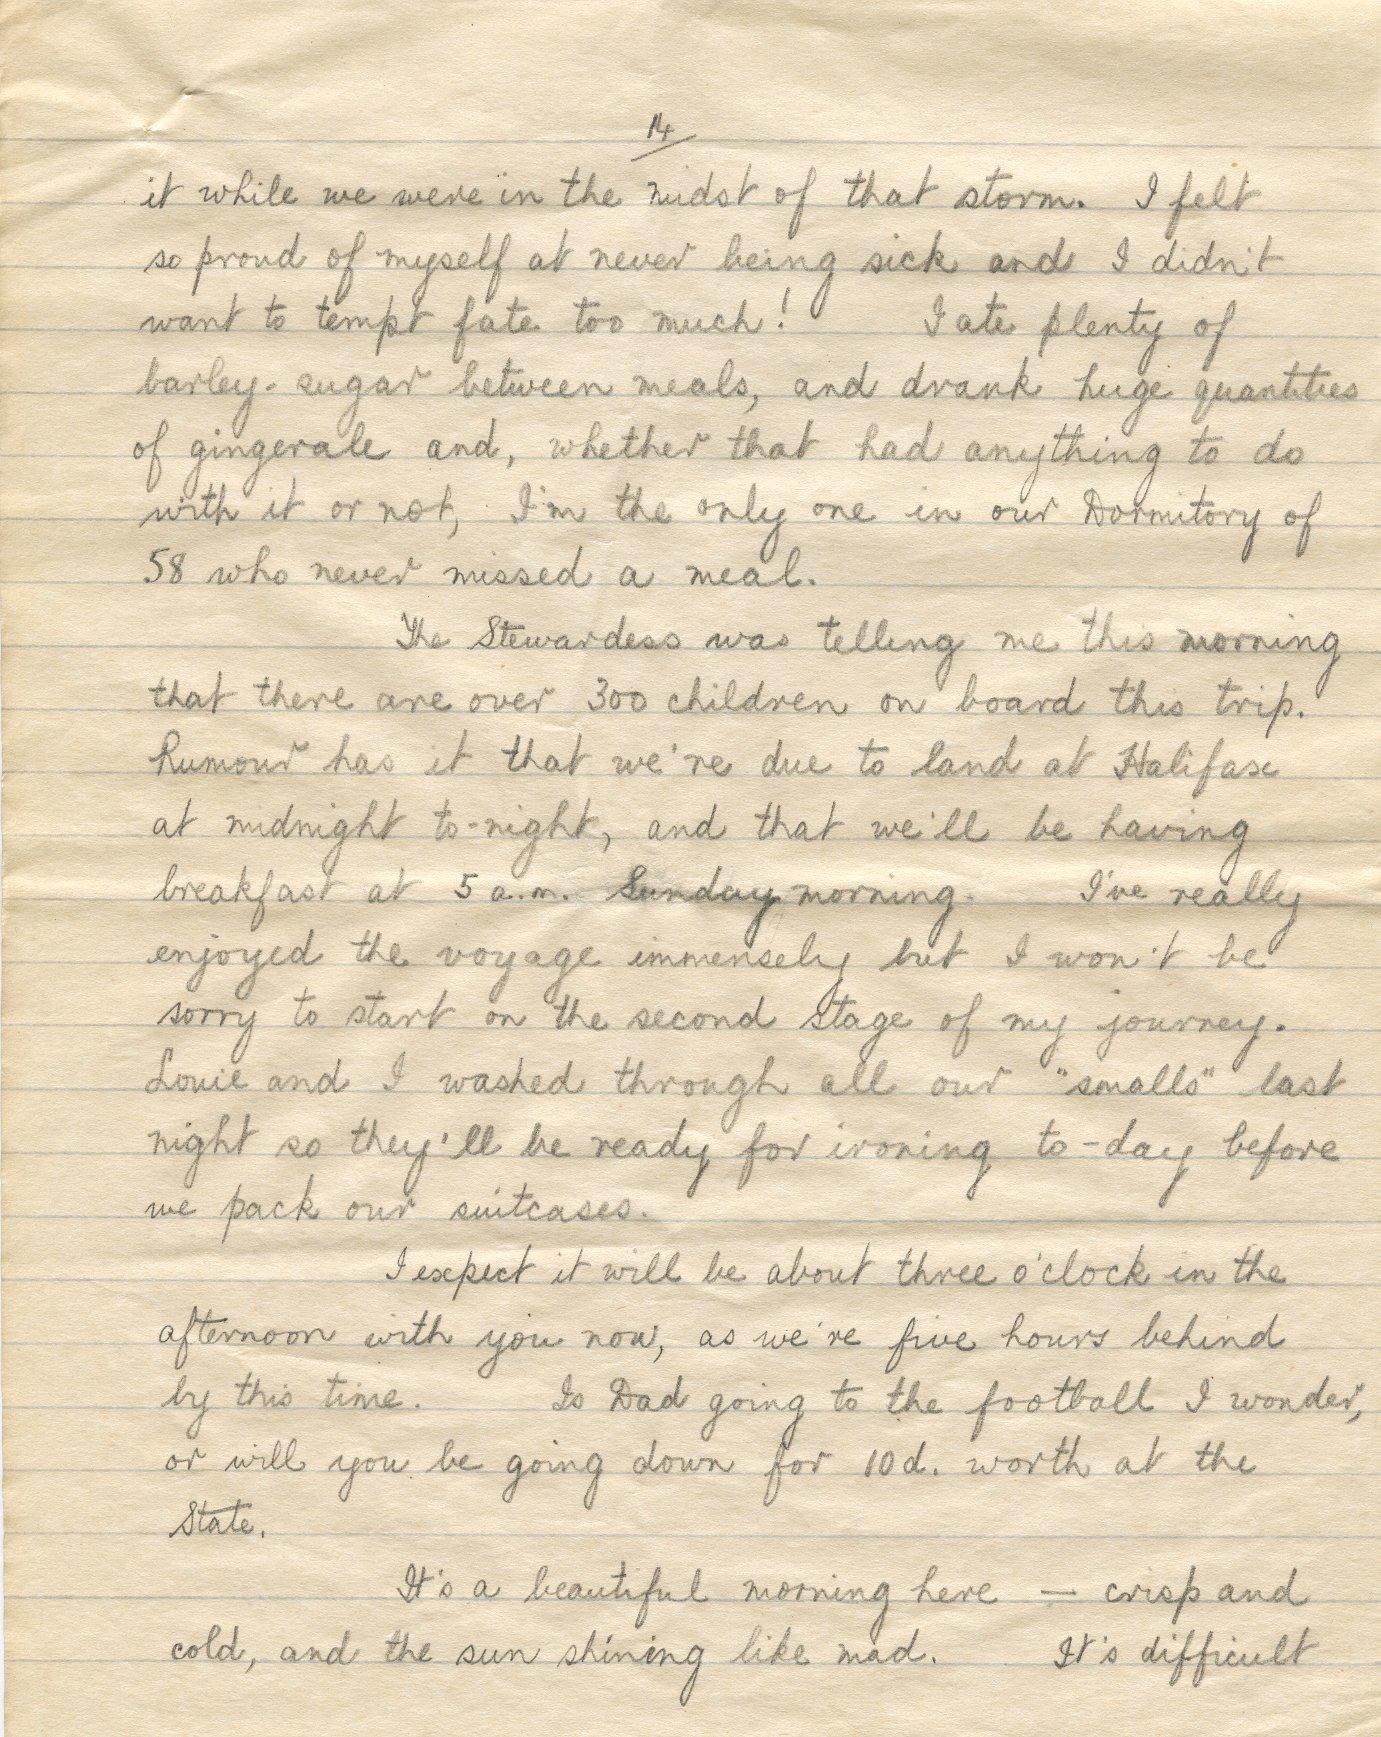 14
it while we were in the midst of that storm. I felt
so proud of myself at never being sick and I didn't
want to tempt fate too much! I ate plenty of
barley-sugar between meals, and drank huge quantities
of gingerale and, whether that had anything to do
with it or not, I'm the only one in our Dormitory of
58 who never missed a meal.
The Stewardess was telling me this morning
that there are over 300 children on board this trip.
Rumour has it that we're due to land at Halifax
at midnight to-night, and that we'll be having
breakfast at 5 a.m. Sunday morning. I've really
enjoyed the voyage immensely but I won't be
sorry to start on the second stage of my journey.
Louie and I washed through all our "smalls" last
night so they'll be ready for ironing to-day before
we pack our suitcases.
I expect it will be about three o'clock in the
afternoon with you now, as we're five hours behind
by this time. Is Dad going to the football I wonder,
or will you be going down for 10d. worth at the
State.
It's a beautiful morning here — crisp and
cold, and the sun shining like mad. It's difficult